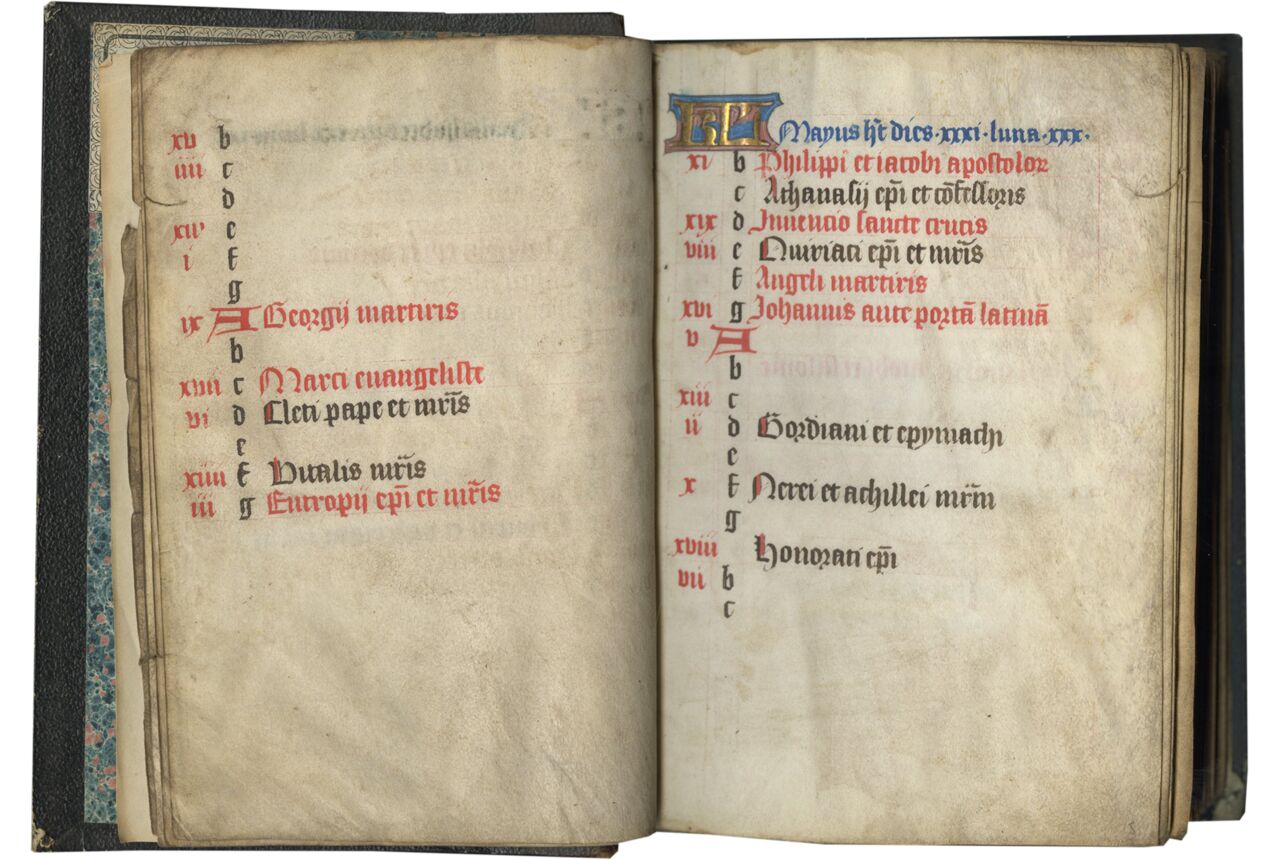 xv b
iiii c
d
xii e
i f
g
ix A Georgij martiris
b
xvii c Marci euangeliste
vi d Cleti pape et mr̄is
e
xiiii f Vitalis mr̄is
iii g Eutropij ep̄i et mr̄is
KL Mayus ht̄ dies·xxxi·luna·xxx·
xi b Philippi et iacobi apostolor
c Athanasij ep̄i et cōfessoris
xix d Inuencio sancte crucis
viii e Quiriaci ep̄i et mr̄is
f Angeli martiris
xvi g Johannis ante portā latinā
v A
b
xiii c
ii d Gordiani et epymachi
e
x f Nerei et achillei mr̄m
g
xviii Honorati ep̄i
vii b
c